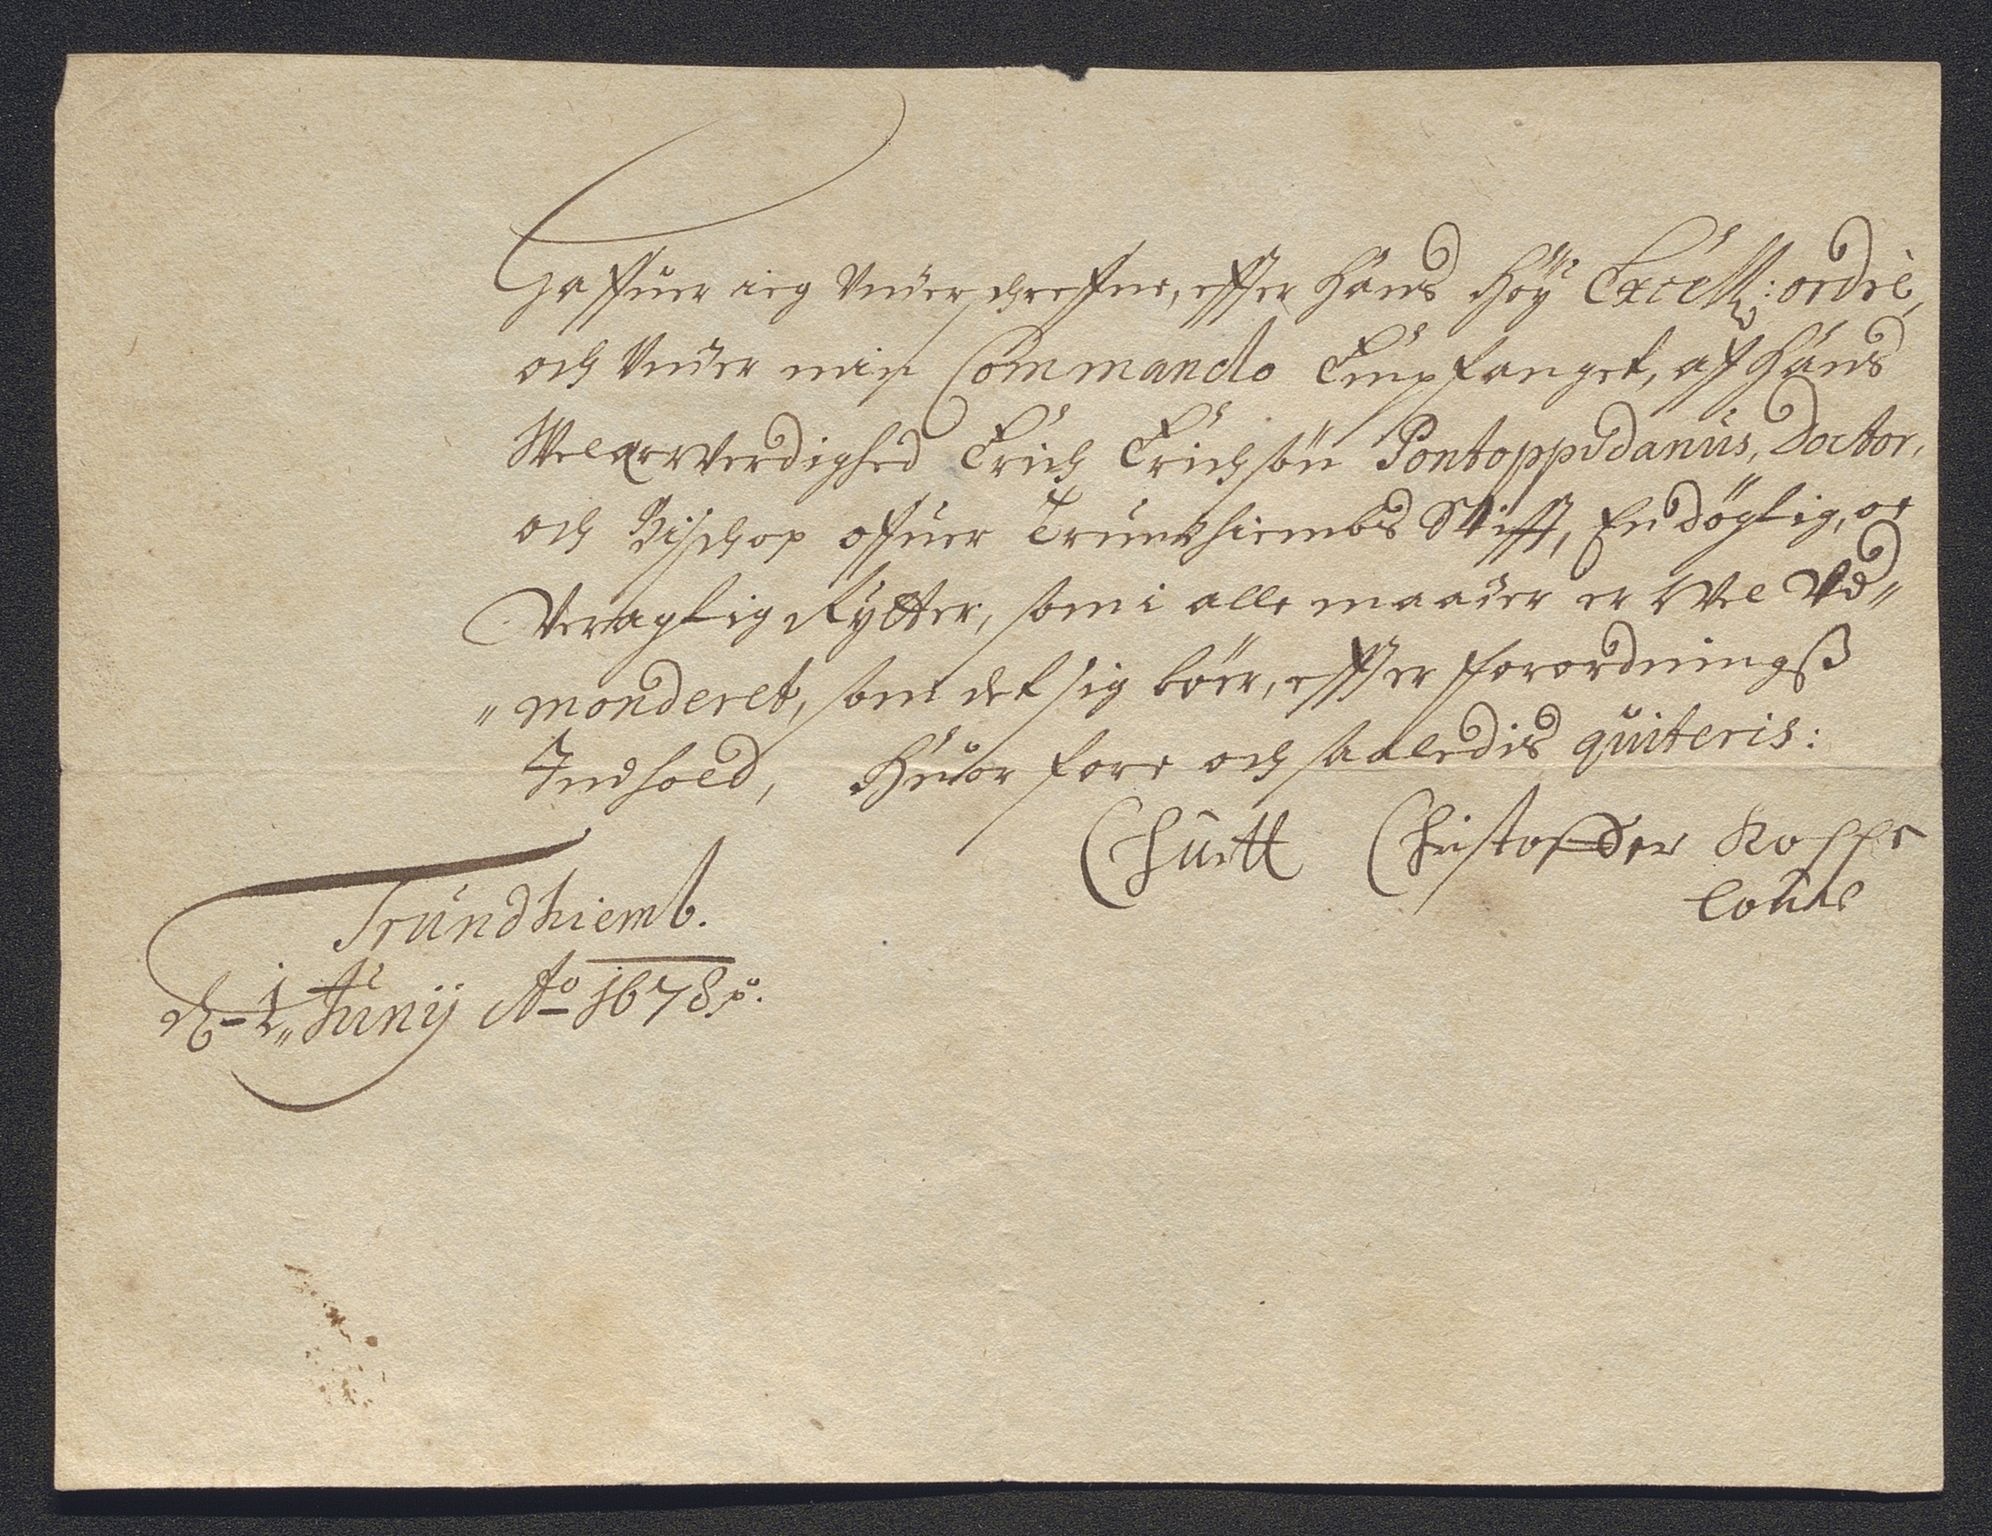 Haffuer ieg Underschreffne, effter Hans Höy Excell: ordre,
och Under min Commando Empfanget, aff Hans
Welærwerdighed Erich Erichsön Pontoppidanus, Doctor,
och Bischop offuer Trundhiembs Stifft, En döghtig, oc
Veragtig Rytter, som i alle maader er Wel Vd„
„monderet, som det sig böer, effter Forordningß
Indhold, Huor fore och saaledis quiteris:
Christoffer
Trundhiemb.
d 1„ Junij Ao 1678